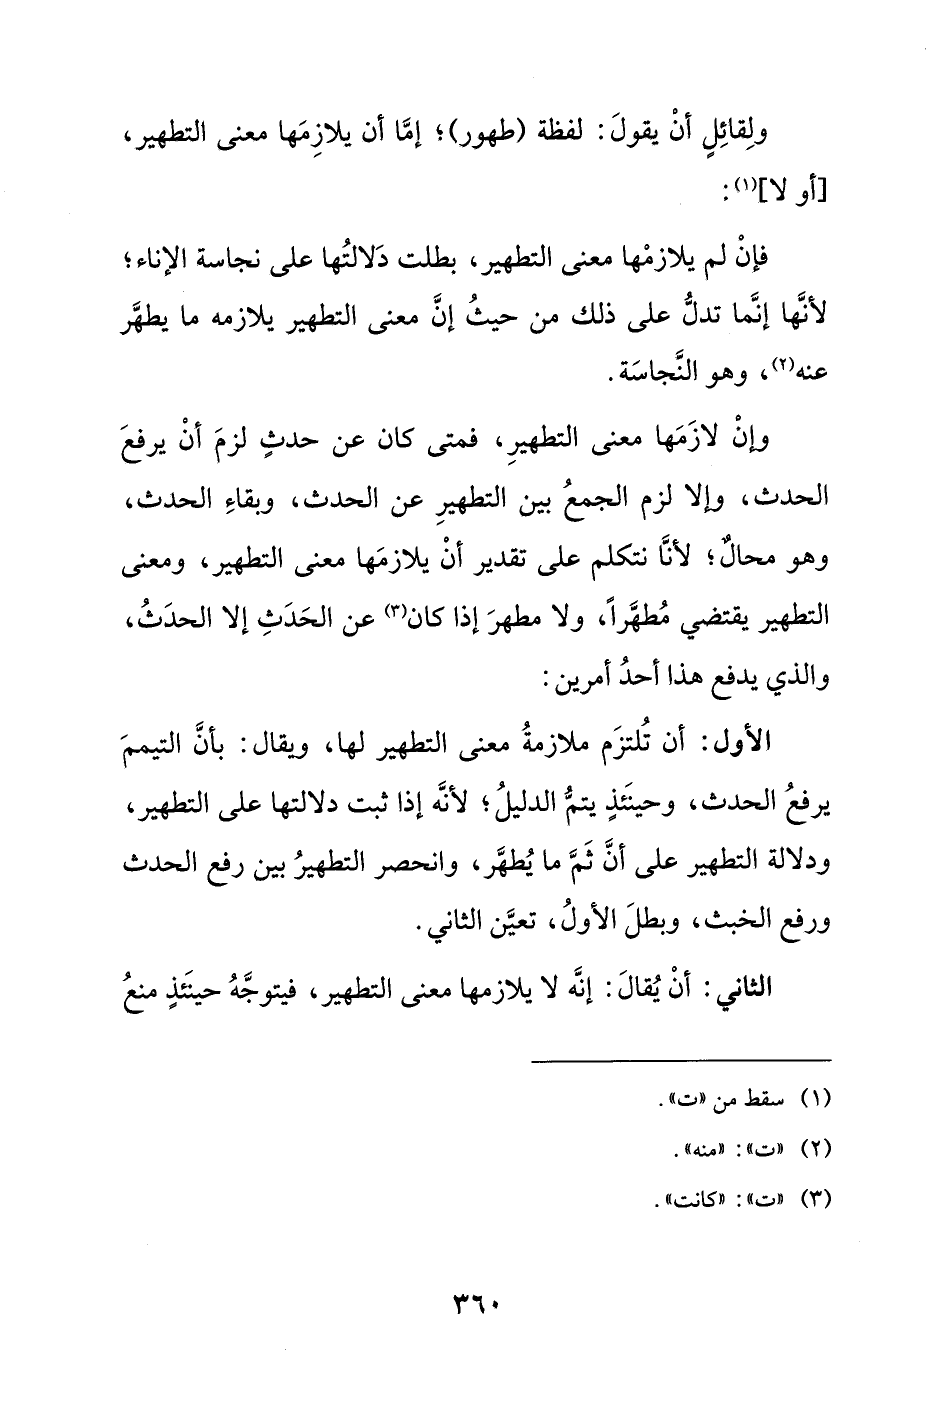 ولِقائِلٍ أنْ يقولَ: لفظة (طهور)؛ إمَّا أن يلازِمَها معنى التطهير،
[أو لا](١):
فإنْ لم يلازمْها معنى التطهير، بطلت دَلالتُها على نجاسة الإناء؛
لأنَّها إنَّما تدلُّ على ذلك من حيثُ إنَّ معنى التطهير يلازمه ما يطهَّر
عنه(٢)، وهو النَّجاسَة.
وإنْ لازَمَها معنى التطهيرِ، فمتى كان عن حدثٍ لزمَ أنْ يرفعَ
الحدث، وإلا لزم الجمعُ بين التطهيرِ عن الحدث، وبقاءِ الحدث،
وهو محالٌ؛ لأنَّا نتكلم على تقدير أنْ يلازمَها معنى التطهير، ومعنى
التطهير يقتضي مُطهَّراً، ولا مطهرَ إذا كان(٣) عن الحَدَثِ إلا الحدَثُ،
والذي يدفع هذا أحدُ أمرين:
الأول: أن تُلتزَم ملازمةُ معنى التطهير لها، ويقال: بأنَّ التيممَ
يرفعُ الحدث، وحينَئذٍ يتمُّ الدليلُ؛ لأنَّه إذا ثبت دلالتها على التطهير،
ودلالة التطهير على أنَّ ثَمَّ ما يُطهَّر، وانحصر التطهيرُ بين رفع الحدث
ورفع الخبث، وبطلَ الأولُ، تعيَّن الثاني.
الثاني: أنْ يُقالَ: إنَّه لا يلازمها معنى التطهير، فيتوجَّهُ حينَئذٍ منعُ
(١) سقط من «ت».
(٢) «ت»: «منه».
(٣) «ت»: «كانت».
٣٦٠